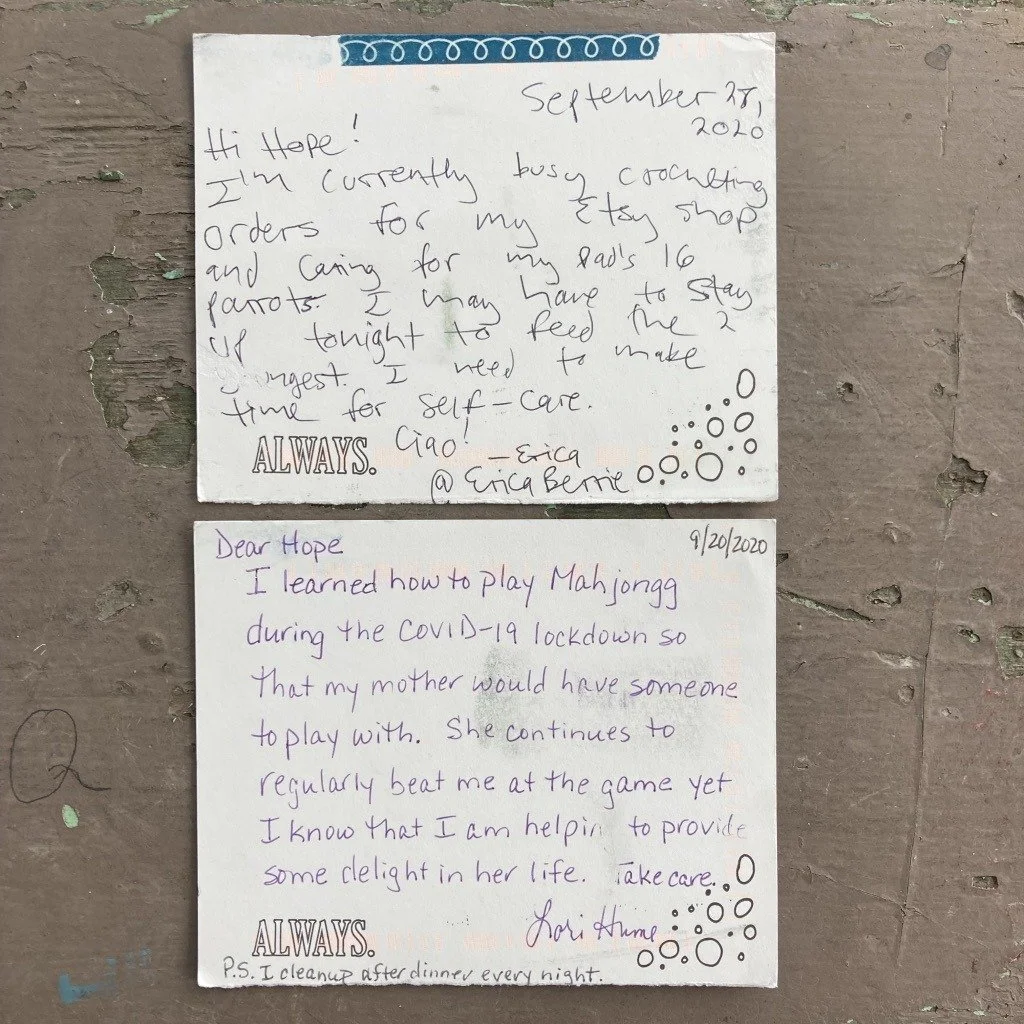 September 28,
2020
Hi Hope!
I'm currently busy crocheting
orders for my Etsy shop
and caring for my Dad's 16
parrots. I may have to stay
up tonight to feed the 2
youngest. I need to make
time for self-care.
ALWAYS. Ciao!
- Erica
@EricaBerrie
Dear Hope 9/20/2020
I learned how to play Mahjongg
during the COVID-19 lockdown so
that my mother would have someone
to play with. She continues to
regularly beat me at the game yet
I know that I am helpin to provide
some delight in her life. Take care.
Lori Hume
ALWAYS.
P.S. I cleanup after dinner every night.
Q